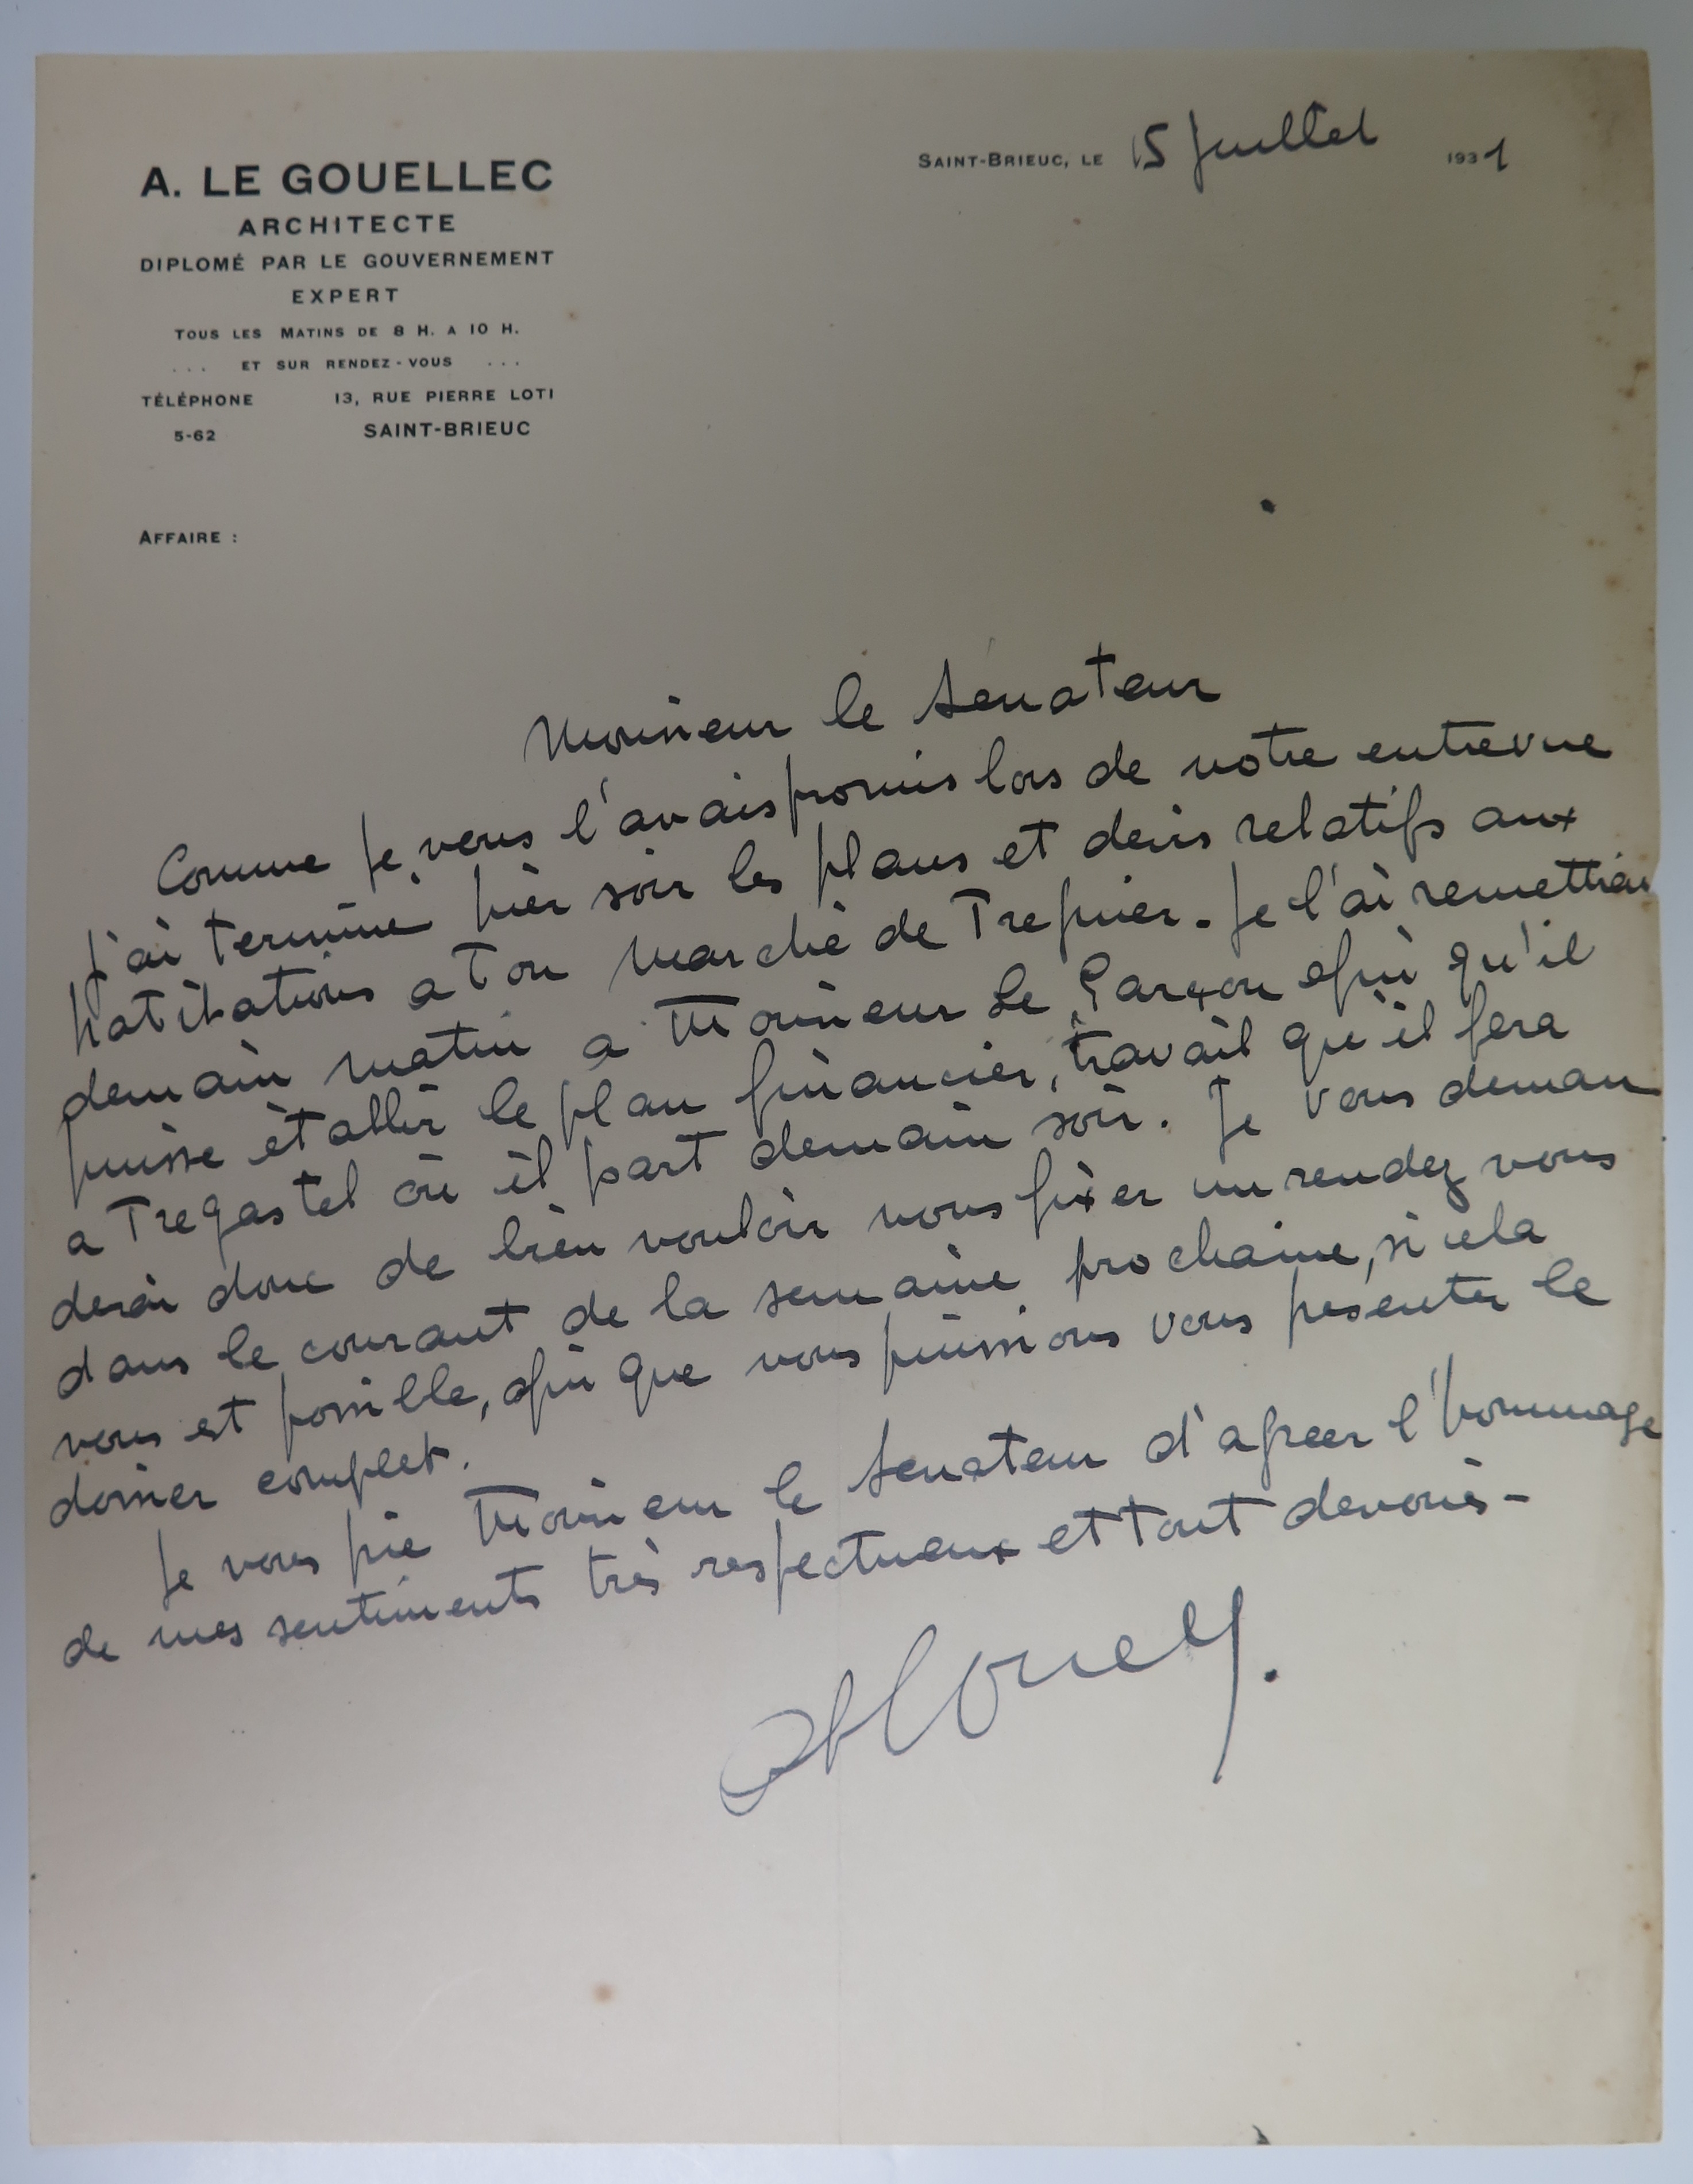 SAINT-BRIEUC, LE 15 Juillet 1931
A. LE GOUELLEC
ARCHITECTE
DIPLOMÉ PAR LE GOUVERNEMENT
EXPERT
TOUS LES MATINS DE 8 H. A 10 H.
... ET SUR RENDEZ-VOUS ...
TÉLÉPHONE 13, RUE PIERRE LOTI
5-62 SAINT-BRIEUC
AFFAIRE :
Monsieur le Senateur
Comme je vous l'avais promis lors de notre entrevue
j'ai terminé hier soir les plans et devis relatifs aux
habitations a bon marché de Treguier. Je l'ai remettrai
demain matin a Monsieur Le Garçon afin qu'il
puisse établir le plan financier, travail qu'il fera
a Tregastel où il part demain soir. Je vous deman
derai donc de bien vouloir nous fixer un rendez vous
dans le courant de la semaine prochaine, si cela
vous est possible, afin que nous puissions vous presenter le
dossier complet.
Je vous prie Monsieur le Senateur d'agreer l'hommage
de mes sentiments très respectueux et tout devoués -